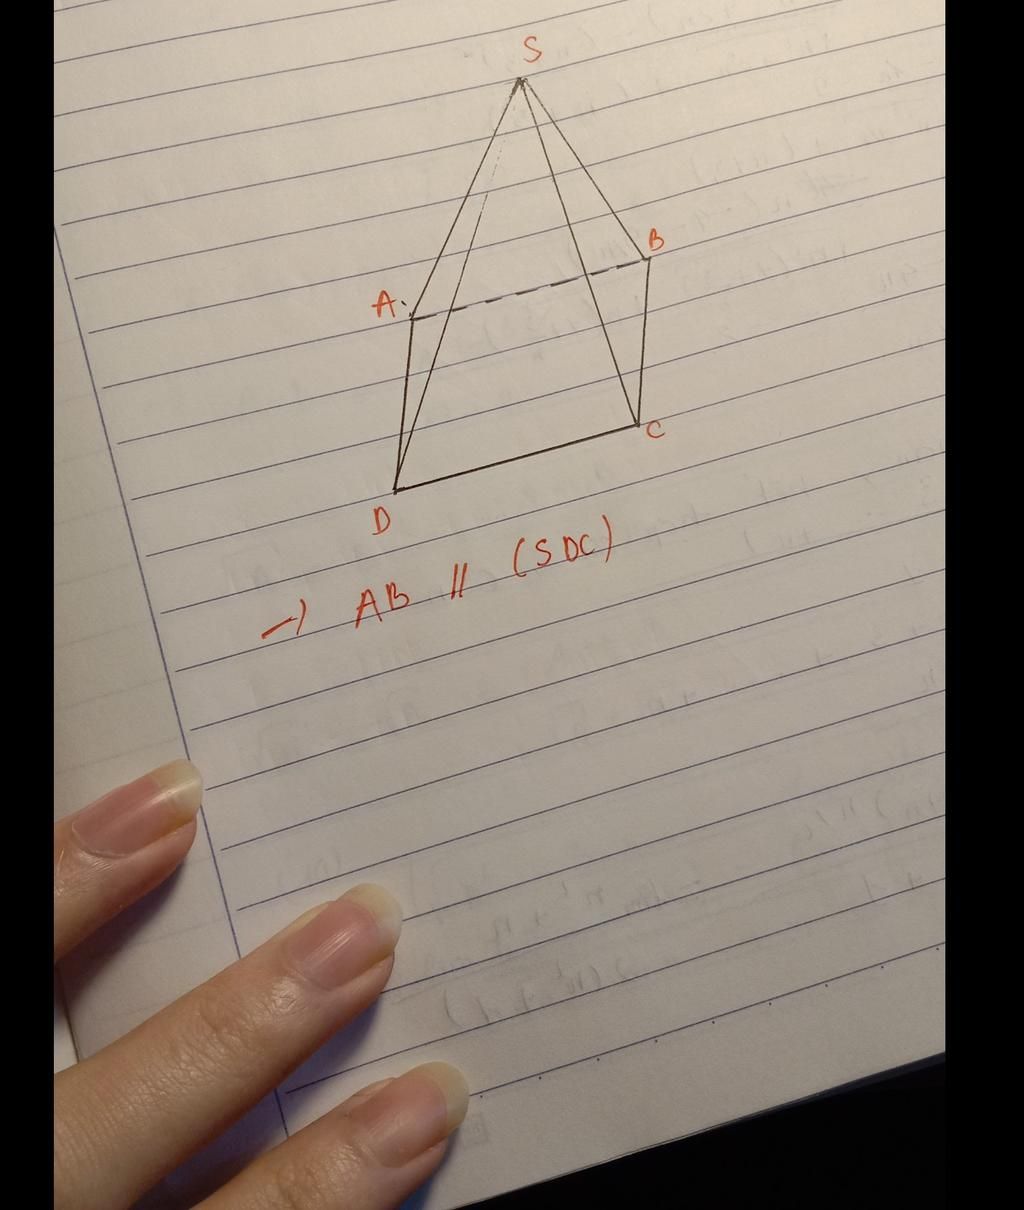 S
B
A
C
D
→ AB // (SDC)